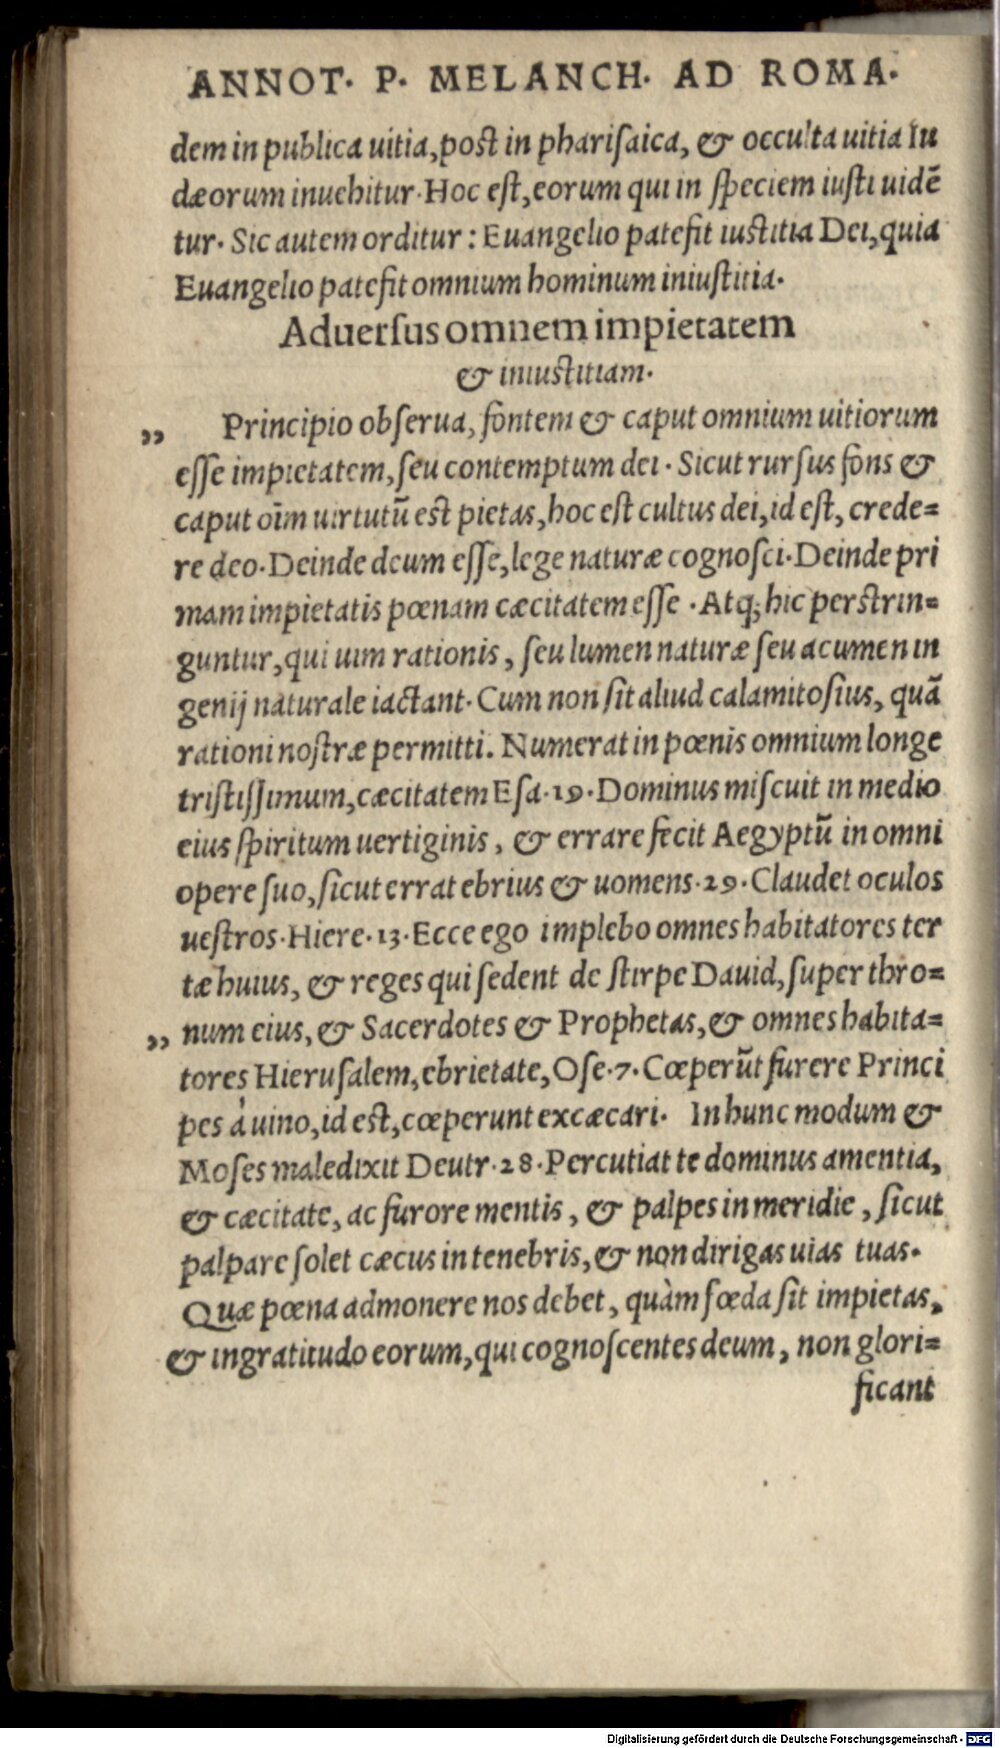 ANNOT· P· MELANCH· AD ROMA·
dem in publica uitia, post in pharisaica, & occulta uitia Iu
dæorum inuehitur· Hoc est, eorum qui in speciem iusti uidē
tur· Sic autem orditur: Euangelio patefit iustitia Dei, quia
Euangelio patefit omnium hominum iniustitia·
Aduersus omnem impietatem
& iniustitiam·
„ Principio obserua, fontem & caput omnium uitiorum
esse impietatem, seu contemptum dei· Sicut rursus fons &
caput oīm uirtutū est pietas, hoc est cultus dei, id est, crede=
re deo· Deinde deum esse, lege naturæ cognosci· Deinde pri
mam impietatis pœnam cæcitatem esse· Atq; hic perstrin=
guntur, qui uim rationis, seu lumen naturæ seu acumen in
genij naturale iactant· Cum non sit aliud calamitosius, quā
rationi nostræ permitti. Numerat in pœnis omnium longe
tristissimum, cæcitatem Esa·19· Dominus miscuit in medio
eius spiritum uertiginis, & errare fecit Aegyptū in omni
opere suo, sicut errat ebrius & uomens·29· Claudet oculos
uestros· Hiere·13· Ecce ego implebo omnes habitatores ter
tæ huius, & reges qui sedent de stirpe Dauid, super thro=
„ num eius, & Sacerdotes & Prophetas, & omnes habita=
tores Hierusalem, ebrietate, Ose·7· Cœperūt furere Princi
pes à uino, id est, cœperunt excæcari· In hunc modum &
Moses maledixit Deutr·28· Percutiat te dominus amentia,
& cæcitate, ac furore mentis, & palpes in meridie, sicut
palpare solet cæcus in tenebris, & non dirigas uias tuas·
Quæ pœna admonere nos debet, quàm fœda sit impietas,
& ingratitudo eorum, qui cognoscentes deum, non glori=
ficant
Digitalisierung gefördert durch die Deutsche Forschungsgemeinschaft - DFG